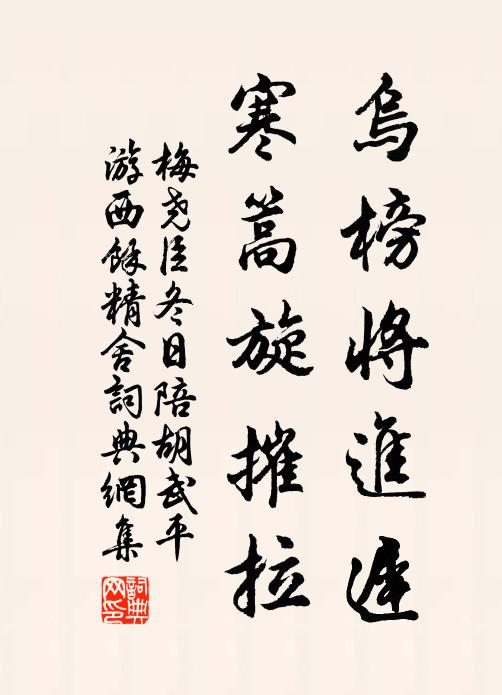 烏榜將進遲
寒篙旋摧拉
梅尧臣冬日陪胡武平
游西餘精舍詞典網集
詞典网印